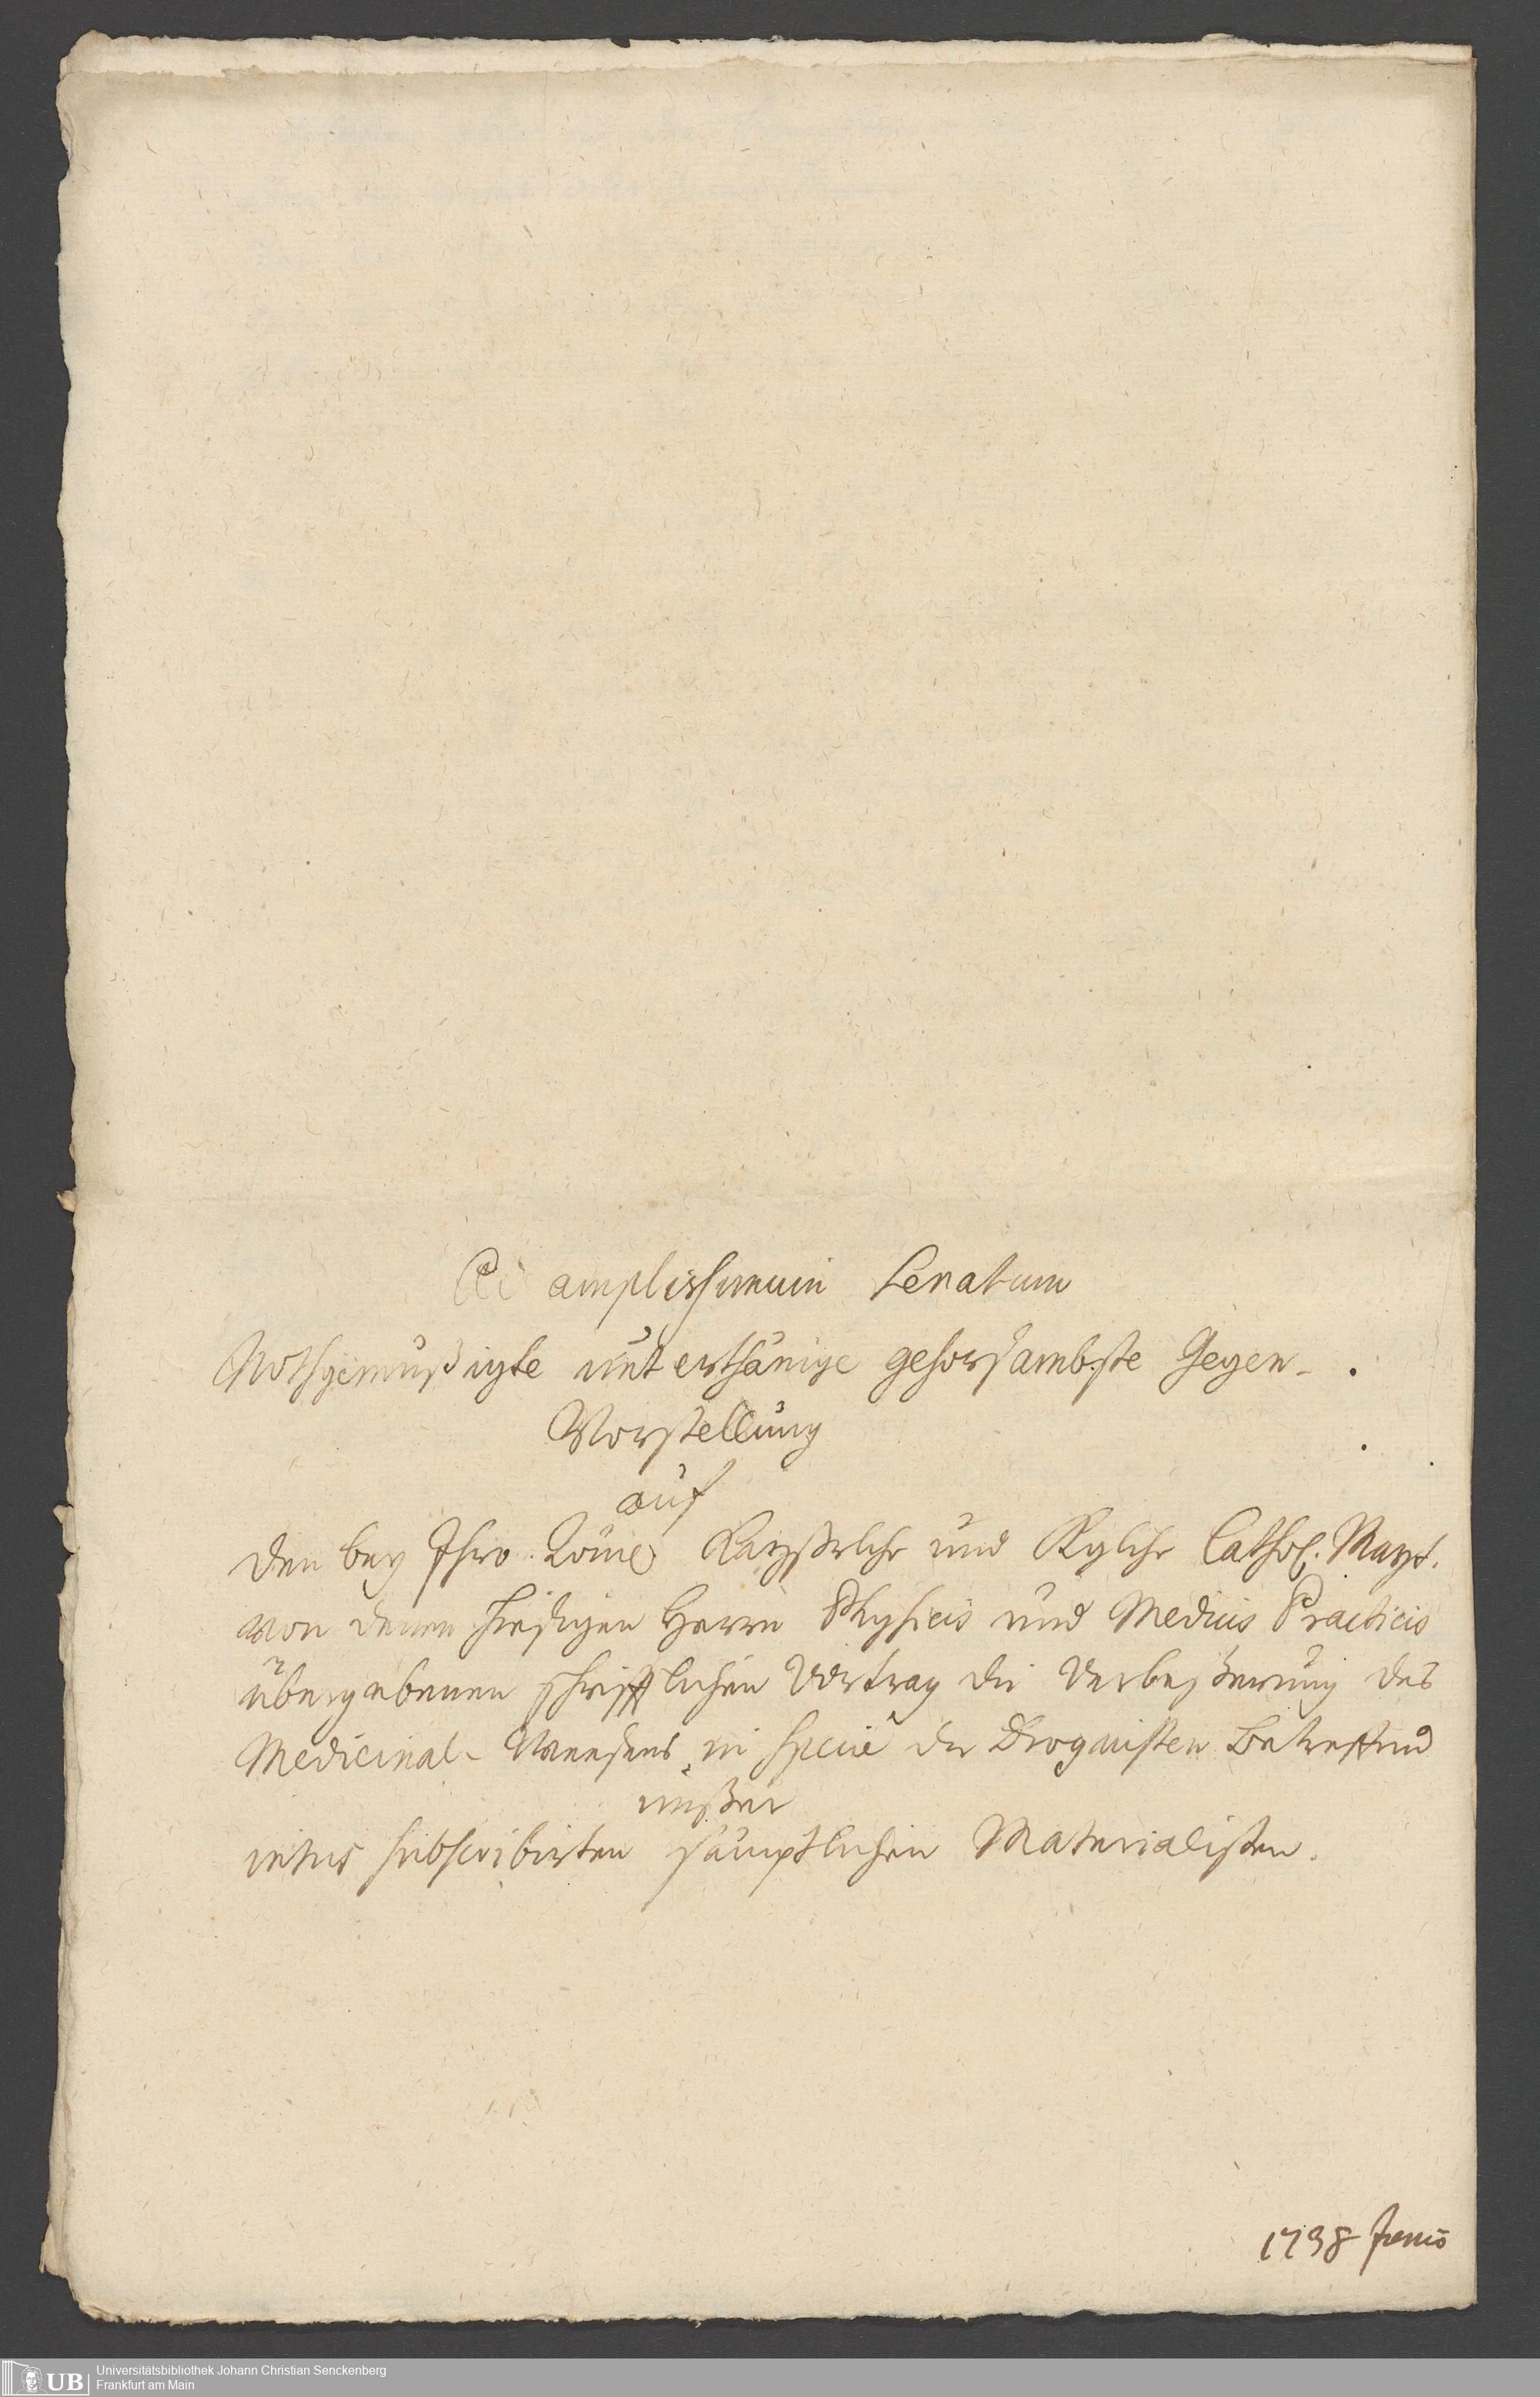 Ad amplissimum Senatum
Nothgemüßigte unterthänige gehorsambste Gegen-
Vorstellung
auf
den bey Ihro Röme Kayßerlchr und Kglchr Cathol. Mayt.
von denen hiesigen Herrn Physicis und Medicis Practicis
übergebenen schrifftlichen Vortrag die Verbeßerung des
Medicinal-Weesens, in specie der Droguisten Betreffend
unßer
intus subscribirten sämptlichen Materialisten.
1738 Junio
Universitätsbibliothek Johann Christian Senckenberg
Frankfurt am Main
UB